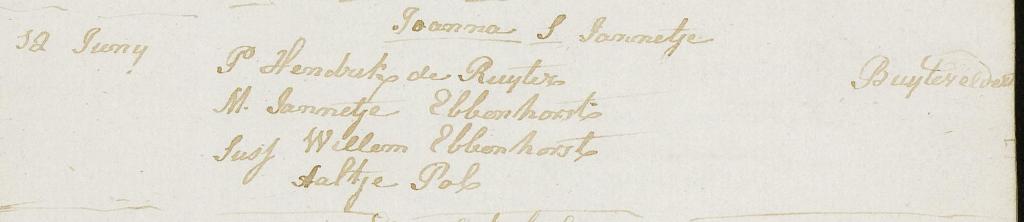 Joanna S Jannetje
12 Juny
P Hendrik de Ruyter Buytevelder
M. Jannetje Ebbenhorst
Susf Willem Ebbenhorst
Aaltje Pol